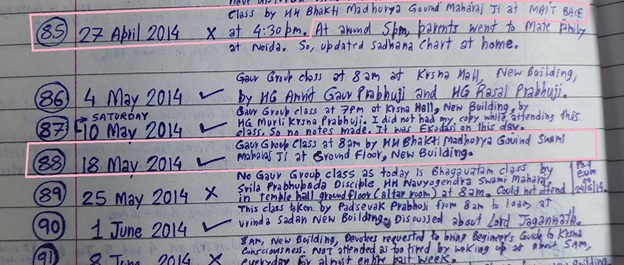 class by HH Bhakti Madhurya Govind Maharaj Ji at MAIT BASE
85 27 April 2014 × at 4:30 pm. At around 5pm, parents went to Male family
at Noida. So, updated Sadhana Chart at home.
Gaur Group class at 8am at Krsna Hall, New Building,
86 4 May 2014 ✓ by HG Amrit Gaur Prabhuji and HG Rasal Prabhuji.
SATURDAY Gaur Group class at 7pm at Krsna Hall, New Building, by
87 10 May 2014 ✓ HG Murli Krsna Prabhuji. I did not had my copy while attending this
class. So no notes made. It was Ekadasi on this day.
Gaur Group Class at 8am by HH Bhakti Madhurya Govind Swami
88 18 May 2014 ✓ Maharaj Ji at Ground Floor, New Building.
No Gaur Group class as today is Bhagavatam class by
89 25 May 2014 × Srila Prabhupada Disciple, HH Navyogendra Swami Maharaj
in temple hall ground floor (altar room) at 8am. Could not attend
This class taken by Padsevak Prabhuji from 8am to 10am at
90 1 June 2014 ✓ Vrinda Sadan New Building. Discussed about Lord Jagannath.
8am, New Building, Devotees requested to bring Beginner's Guide to Krsna
Consciousness. Not attended as too tired by waking up at about 5am,
91 8 June 2014 × everyday for almost entire past week.